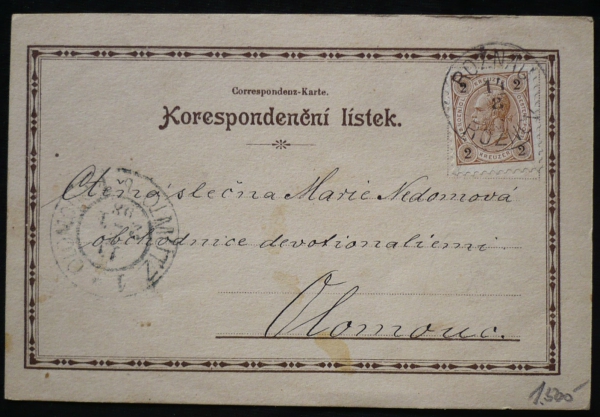 Correspondenz-Karte.
Korespondenční lístek.
2 KREUZER 2
ROŽNAU
Ctěná slečna Marie Nedomová
obchodnice devotionaliemi
Olomouc.
1.500